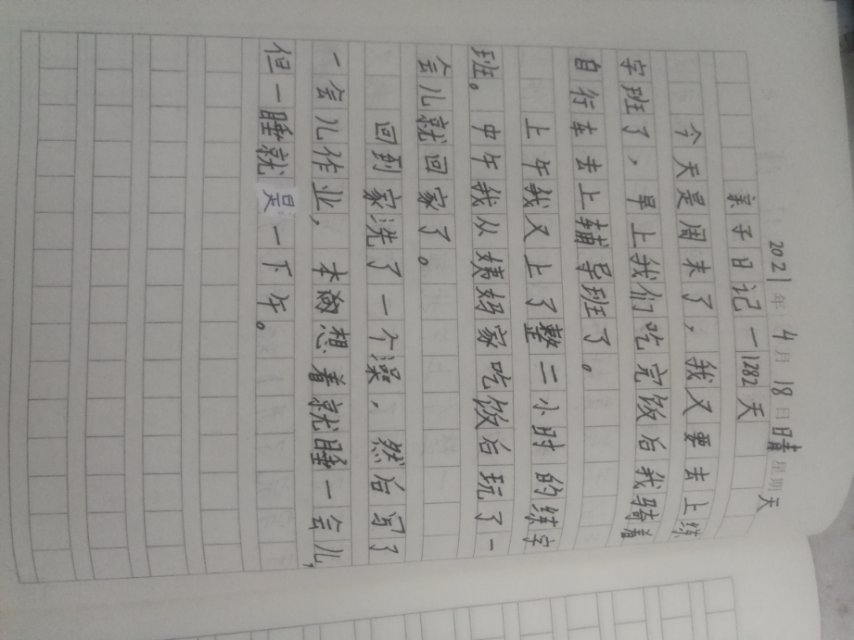 2021年4月18日晴星期天
亲子日记一1282天
今天是周末了，我又要去上练
字班了，早上我们吃完饭后我骑着
自行车去上辅导班了。
上午我又上了整二小时的练字
班。中午我从姨妈家吃饭后玩了一
会儿就回家了。
回到家洗了一个澡，然后写了
一会儿作业，本想着就睡一会儿，
但一睡就是一下午。